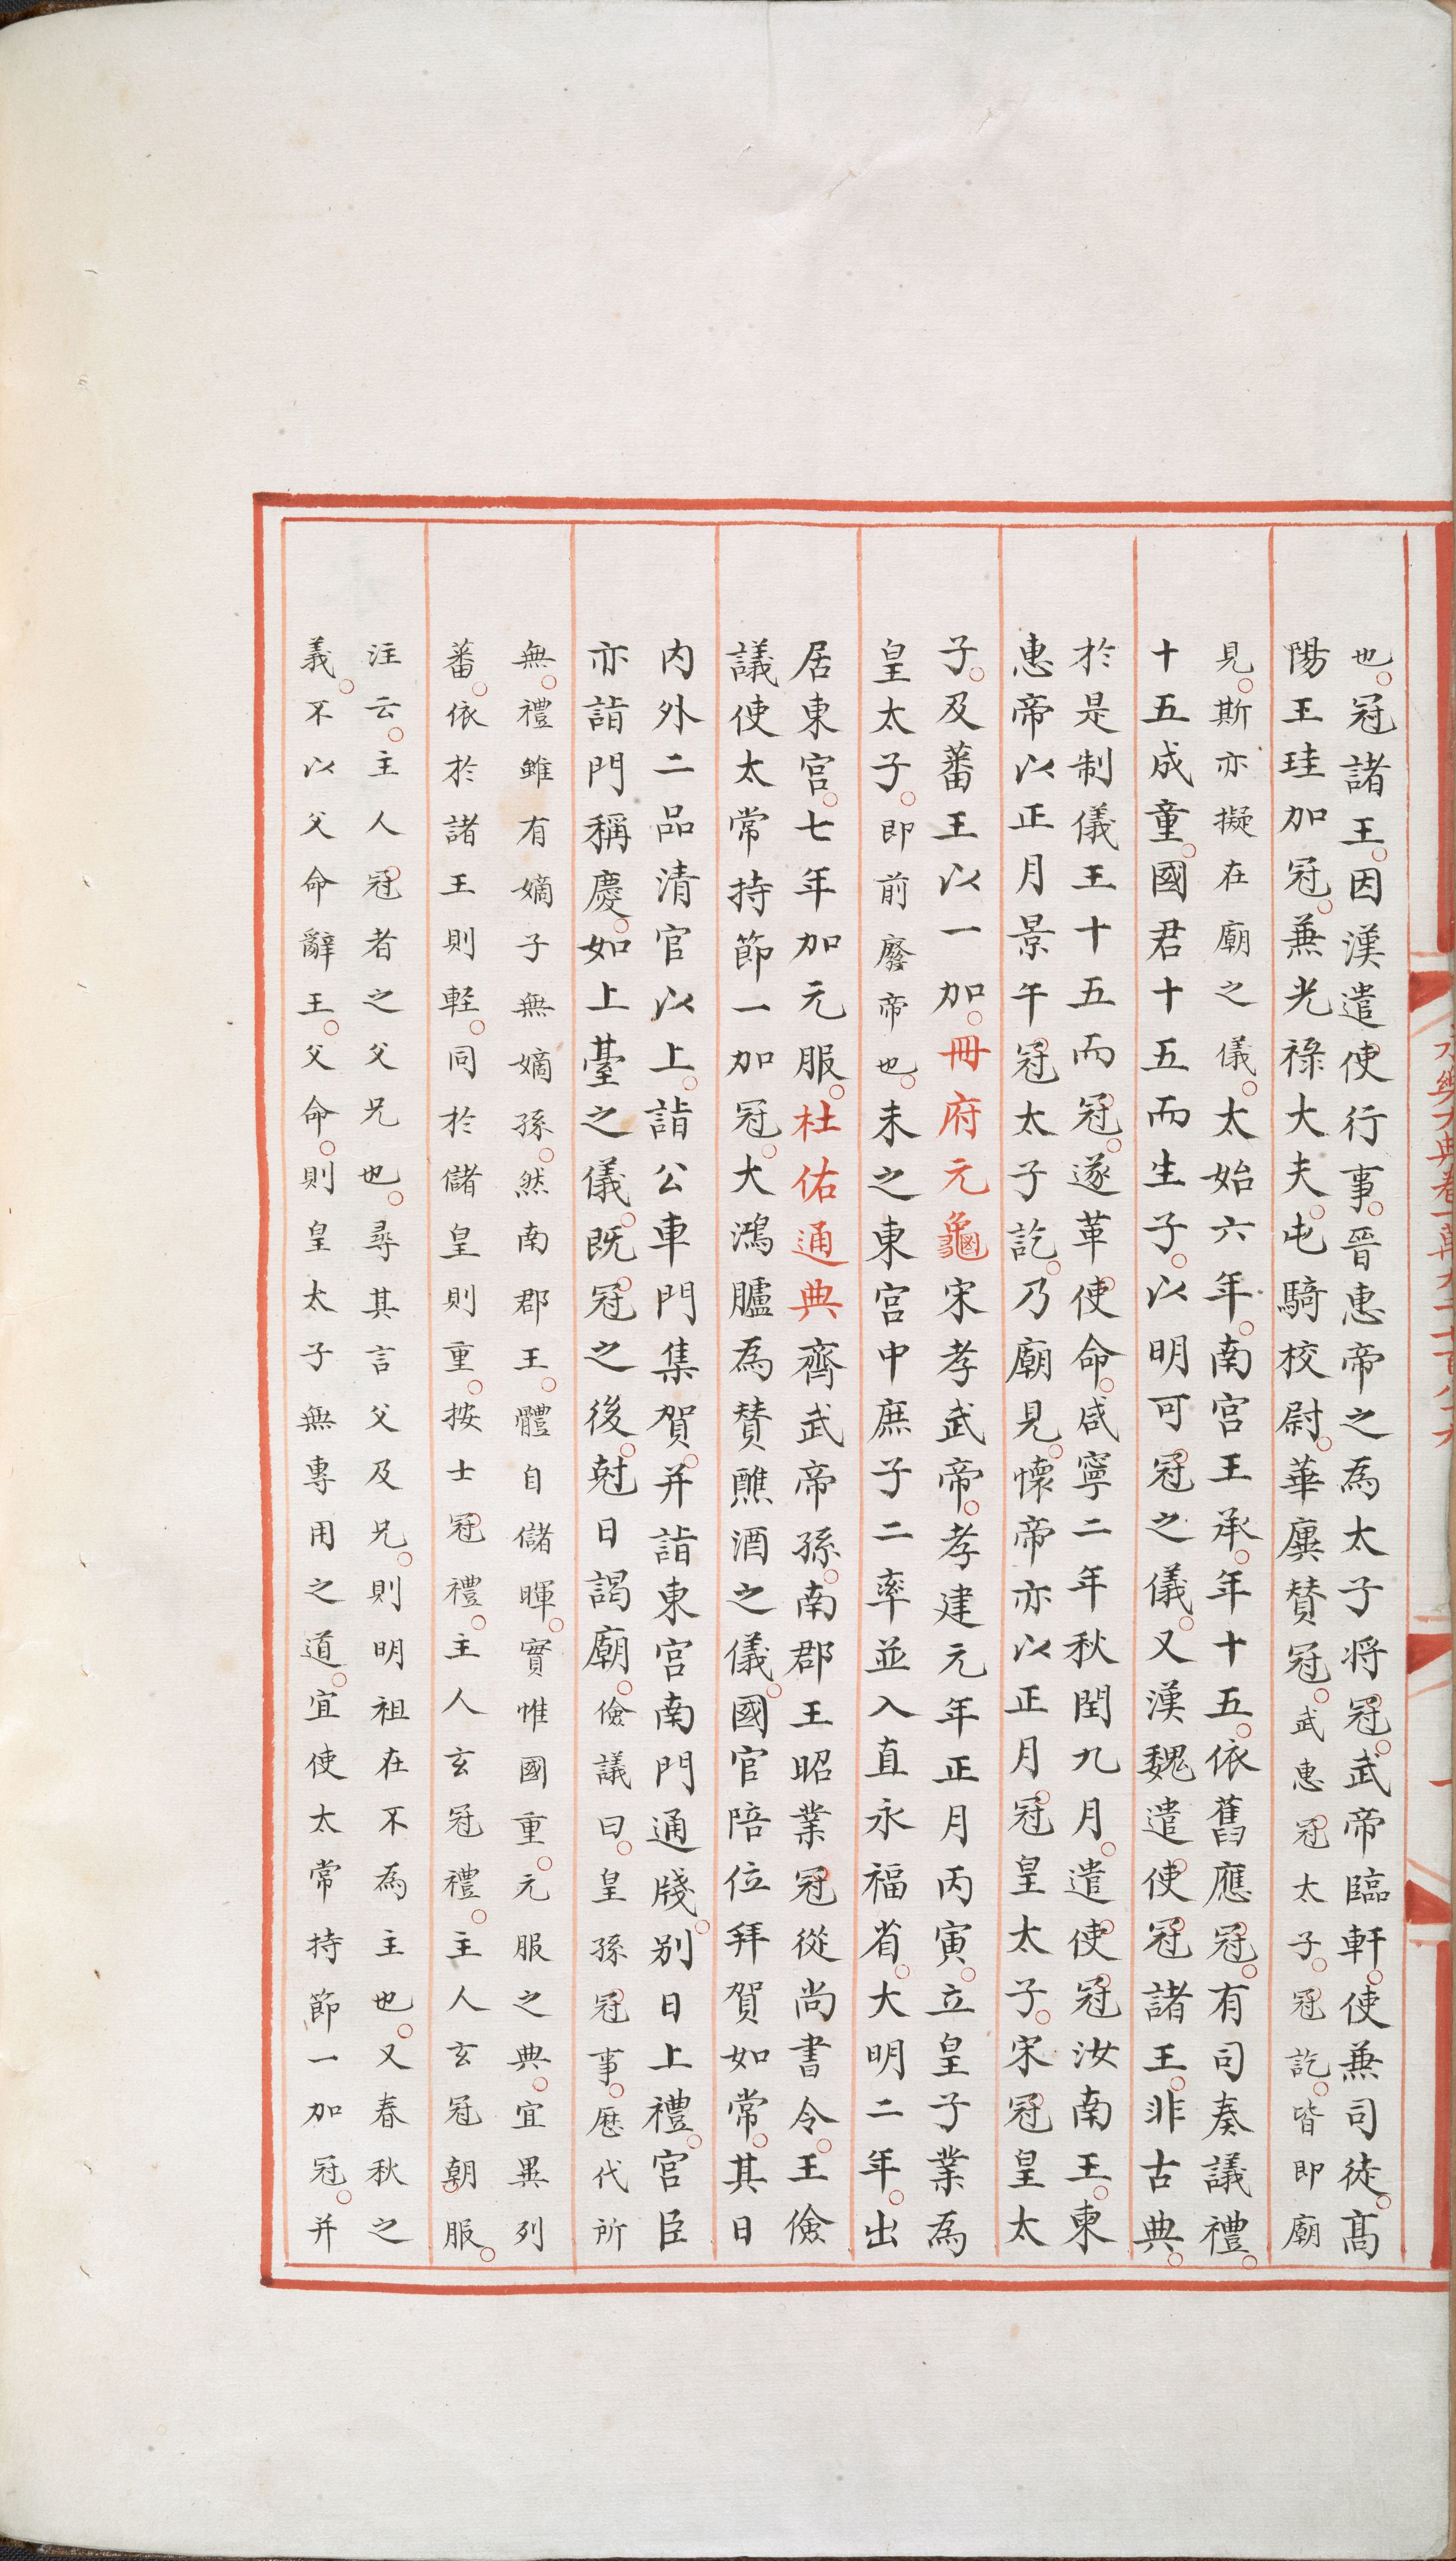 也。冠諸王。因漢遣使行事。晉惠帝之為太子將冠。武帝臨軒。使兼司徒。高
陽王珪加冠。兼光祿大夫。屯騎校尉。華廙贊冠。武惠冠太子。冠訖。皆即廟
見。斯亦擬在廟之儀。太始六年。南宮王承。年十五。依舊應冠。有司奏議禮。
十五成童。國君十五而生子。以明可冠之儀。又漢魏遣使冠諸王。非古典。
於是制儀王十五而冠。遂革使命。咸寧二年秋閏九月。遣使冠汝南王。東
惠帝以正月景午冠太子訖。乃廟見。懷帝亦以正月冠皇太子。宋冠皇太
子。及蕃王以一加。冊府元龜宋孝武帝。孝建元年正月丙寅。立皇子業為
皇太子。即前廢帝也。未之東宮中庶子二率並入直永福省。大明二年。出
居東宮。七年加元服。杜佑通典齊武帝孫。南郡王昭業冠從尚書令。王儉
議使太常持節一加冠。大鴻臚為贊醮酒之儀。國官陪位拜賀如常。其日
內外二品清官以上。詣公車門集賀。并詣東宮南門通牋。別日上禮。宮臣
亦詣門稱慶。如上臺之儀。既冠之後。尅日謁廟。儉議曰。皇孫冠事。歷代所
無。禮雖有嫡子無嫡孫。然南郡王。體自儲暉。實惟國重。元服之典。宜異列
蕃。依於諸王則輕。同於儲皇則重。按士冠禮。主人玄冠禮。主人玄冠朝服。
注云。主人冠者之父兄也。尋其言父及兄。則明祖在不為主也。又春秋之
義。不以父命辭王。父命。則皇太子無專用之道。宜使太常持節一加冠。并